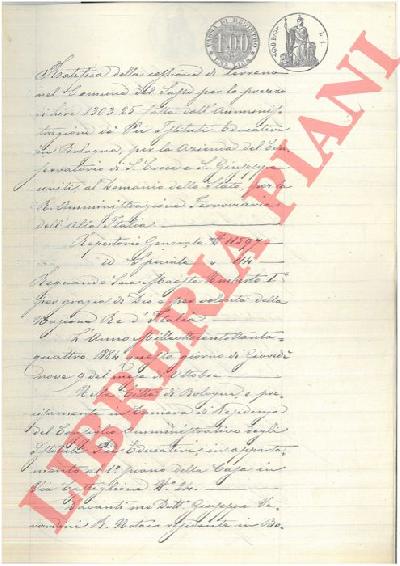 della cessione di terreno
nel Comune del per lo prezzo
di Lire 1303.25 fatta dall'Amministra
zione di Pii Istituti Educativi
in Bologna, per la Azienda del Con
servatorio di S. Croce e S. Giuseppe
al Demanio dello Stato, per la
R. Amministrazione Ferroviaria
dell'Alta Italia
Repertorio Generale N°
id Speciale " 844
Regnando Sua Maestà Umberto I°
per grazia di Dio e per volontà della
Nazione Re d'Italia
L'Anno Milleottocentottanta
quattro 1884 questo giorno di Giovedì
nove 9 del mese di Ottobre
Nella Città di Bologna e pre
cisamente in Camera di Residenza
del Consiglio Amministrativo degli
Istituti Pii Educativi, in apparta
mento al 1° piano della Casa in
Via N° 24.
Davanti me Dott. Giuseppe
R. Notaio residente in Bo-
LIBRERIA PIANI